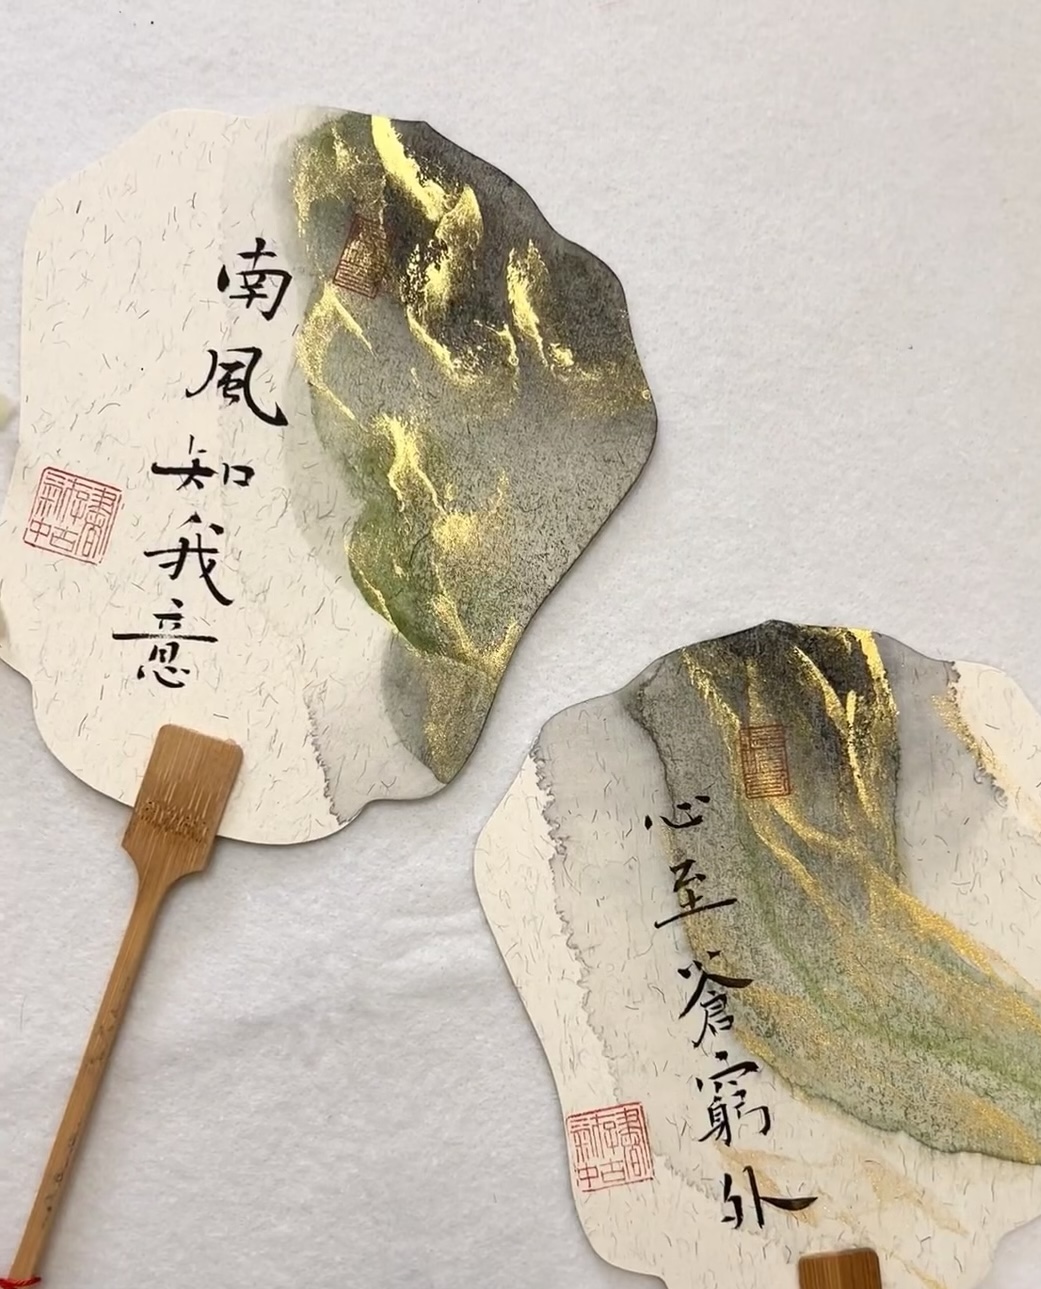 南風知我意
心至蒼窮外